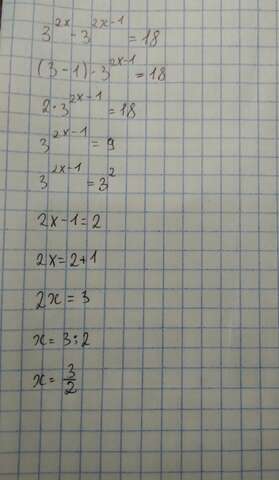 3^{2x} - 3^{2x-1} = 18
(3-1) · 3^{2x-1} = 18
2 · 3^{2x-1} = 18
3^{2x-1} = 9
3^{2x-1} = 3^2
2x-1=2
2x=2+1
2x = 3
x = 3:2
x = \frac{3}{2}